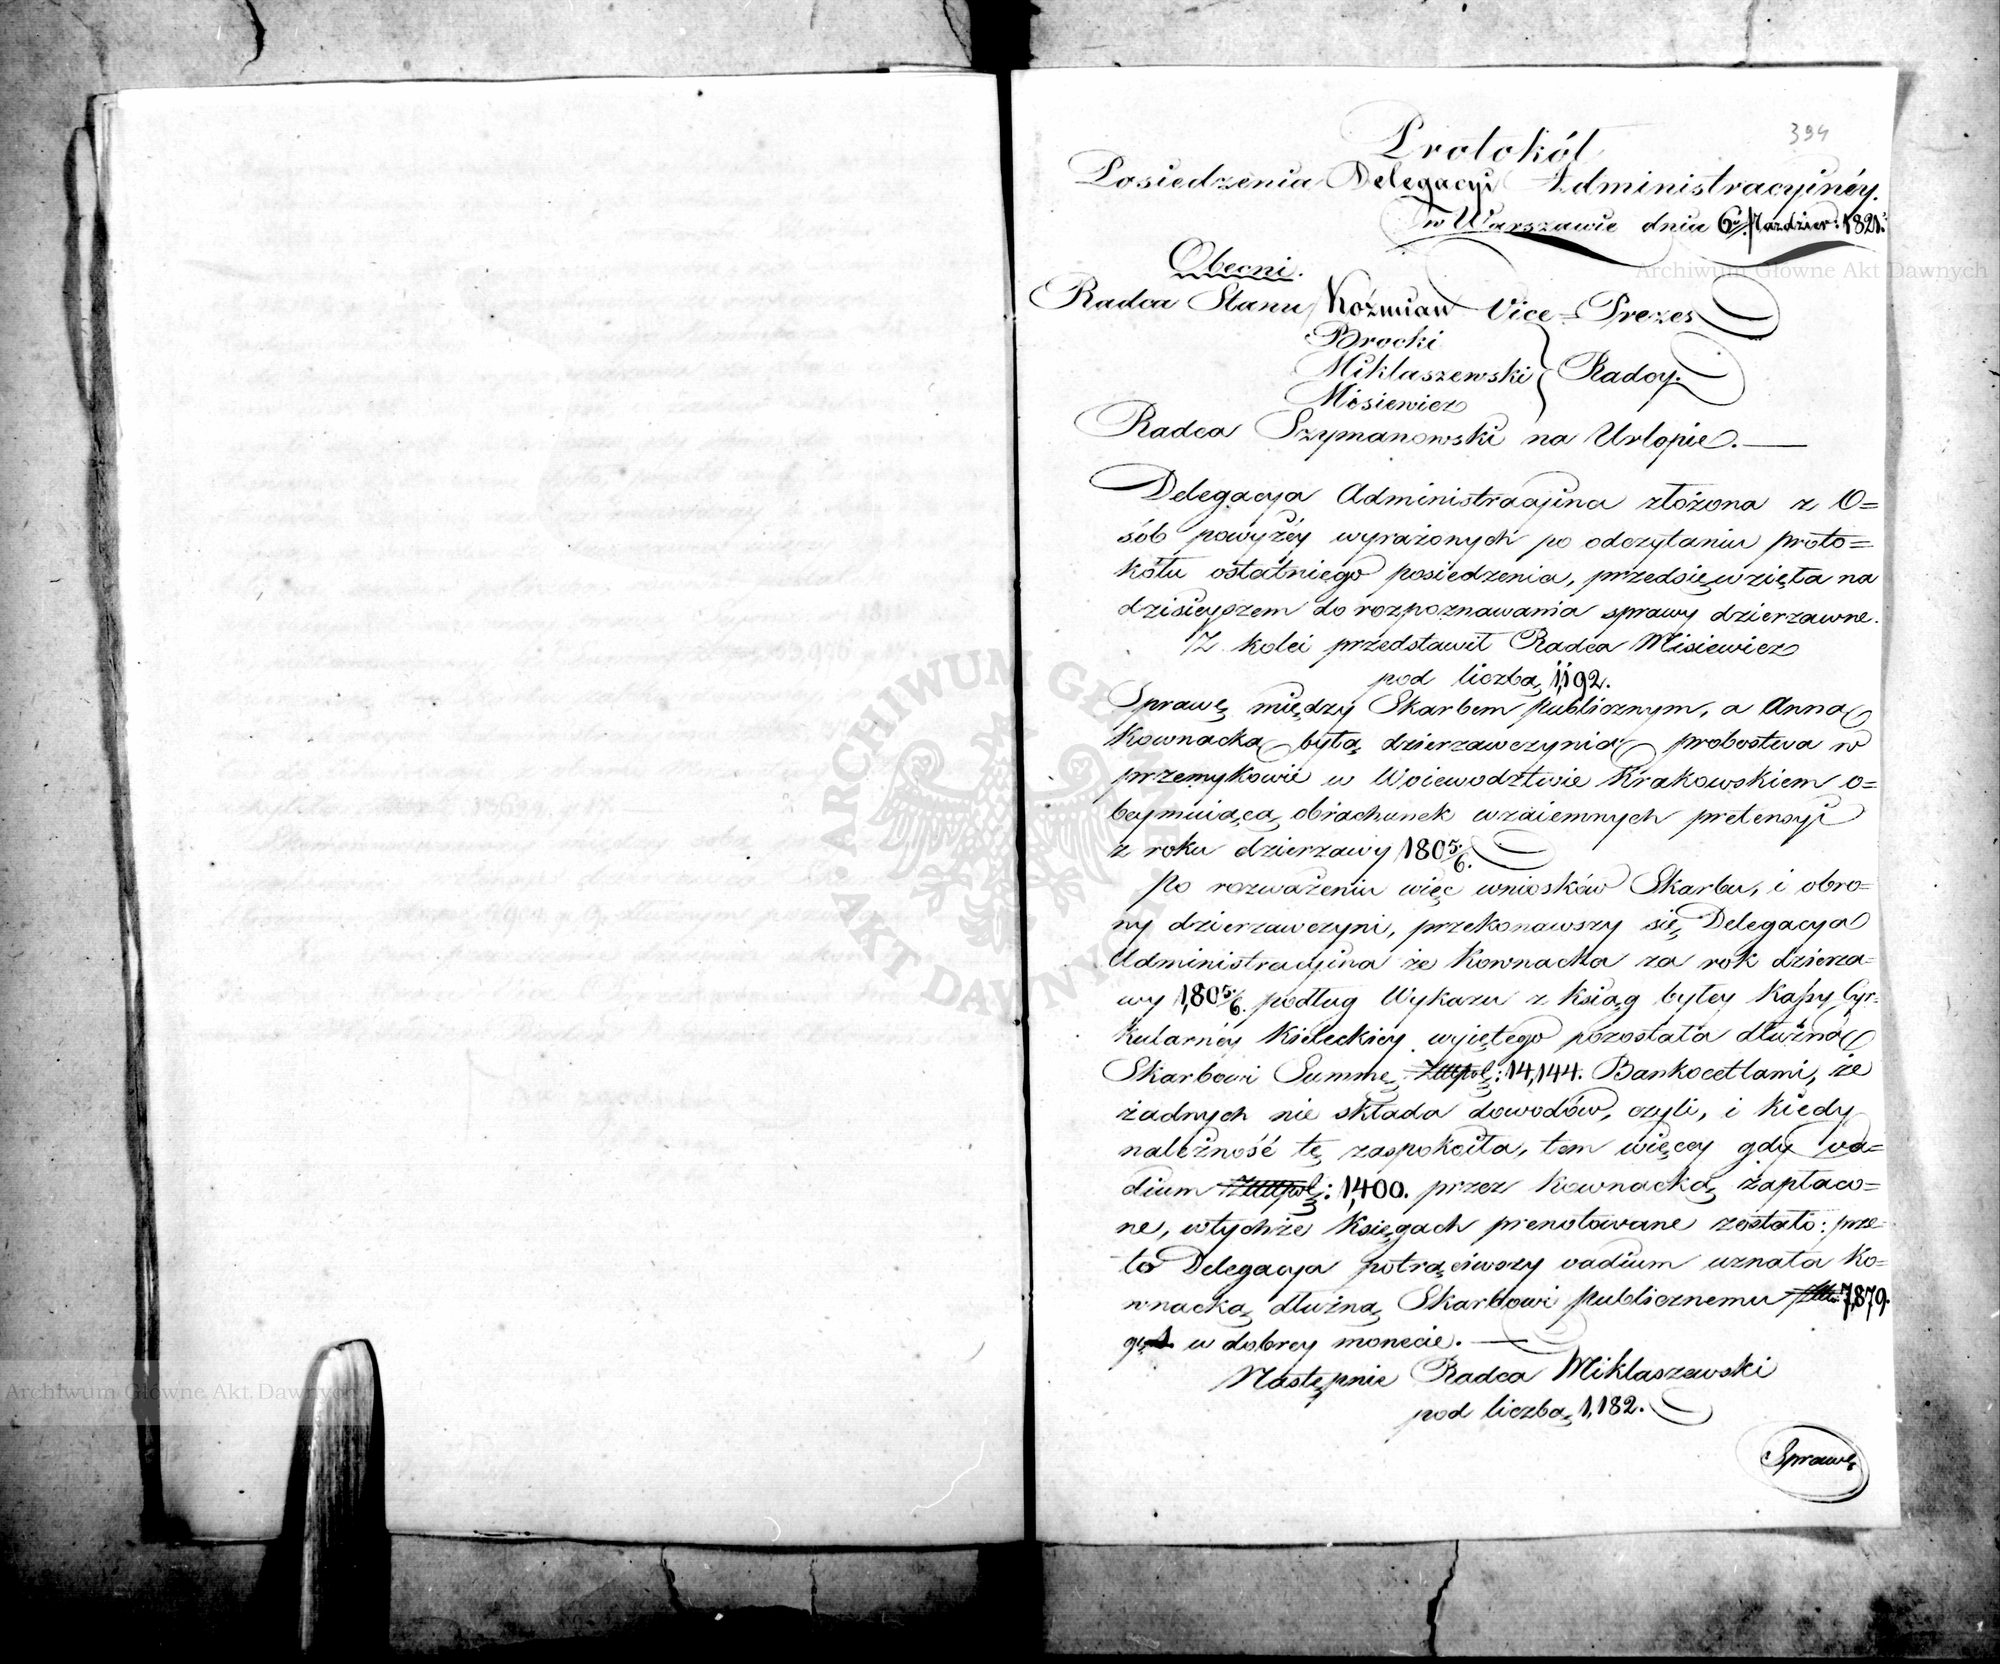 394
Protokół
Posiedzenia Delegacyi Administracyinéy.
w Warszawie dnia 6go Paździer: 1821.
Obecni.
Radca Stanu Koźmian Vice=Prezes
Brocki
Miklaszewski } Radcy.
Misiewicz
Radca Szymanowski na Urlopie.
Delegacya Administracyina złożona z O=
sób powyżéy wyrażonych po odczytaniu proto=
kółu ostatniego posiedzenia, przedsięwzięła na
dzisieyszem do rozpoznawania sprawy dzierzawne.
Z kolei przedstawił Radca Misiewicz
pod liczbą 1,192.
Sprawę między Skarbem publicznym, a Anną
Kownacką byłą dzierzawczynią probostwa w
przemykowie w Woiewodztwie Krakowskiem o=
beymuiącą obrachunek wzaiemnych pretensyi
z roku dzierzawy 1805/6.
Po rozważeniu więc wniosków Skarbu, i obro=
ny dzierzawczyni, przekonawszy się Delegacya
Administracyina że Kownacka za rok dzierza=
wy 1,805/6. podług Wykazu z ksiąg byłey Kassy Cyr=
kularnéy Kieleckiey wyiętego pozostała dłużną
Skarbowi Summę : 14,144. Bankocetlami, że
żadnych nie składa dowodów, czyli, i kiedy
należność tę zaspokoiła, tem więcey gdy va=
dium : 1,400. przez Kownacką zapłaco=
ne, wtychże księgach prenotowane zostało: prze=
to Delegacya potrąciwszy vadium uznała Ko=
wnacką dłużną Skarbowi publicznemu 7,879.
w dobrey monecie.
Następnie Radca Miklaszewski
pod liczbą 1,182.
Sprawę
Archiwum Główne Akt Dawnych
Archiwum Główne Akt Dawnych
ARCHIWUM GŁÓWNE AKT DAWNYCH